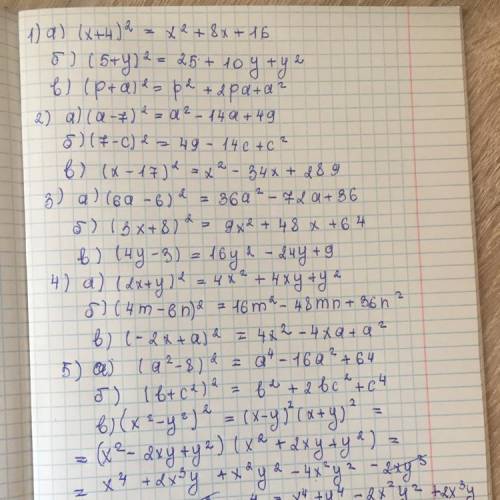 1) а) (x+4)² = x² + 8x + 16
б) (5+y)² = 25 + 10y + y²
в) (p+a)² = p² + 2pa + a²
2) а) (a-7)² = a² - 14a + 49
б) (7-c)² = 49 - 14c + c²
в) (x-17)² = x² - 34x + 289
3) а) (6a-6)² = 36a² - 72a + 36
б) (3x+8)² = 9x² + 48x + 64
в) (4y-3) = 16y² - 24y + 9
4) а) (2x+y)² = 4x² + 4xy + y²
б) (4m-6n)² = 16m² - 48mn + 36n²
в) (-2x+a)² = 4x² - 4xa + a²
5) а) (a²-8)² = a⁴ - 16a² + 64
б) (b+c²)² = b² + 2bc² + c⁴
в) (x²-y²)² = (x-y)² (x+y)² =
= (x² - 2xy + y²) (x² + 2xy + y²) =
= x⁴ + 2x³y + x²y² - 4x²y² - 2xy³
= x⁴ + y⁴ - 2x²y² + 2x³y